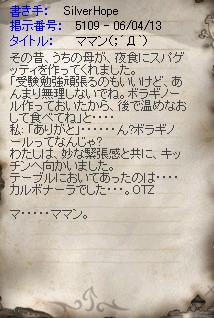 書き手: SilverHope
掲示番号: 5109 - 06/04/13
タイトル: ママン(；´Д｀)
その昔、うちの母が、夜食にスパゲ
ッティを作ってくれました。
「受験勉強頑張るのもいいけど、あ
んまり無理しないでね。ボラギノ
ール作っておいたから、後で温めなお
して食べてね」と・・・・
私:「ありがと」・・・・・・ん?ボラギノ
ールってなんじゃ?
わたしは、妙な緊張感と共に、キッ
チンへ向かいました。
テーブルにおいてあったのは・・・・
カルボナーラでした・・・。OTZ
マ・・・・・ママン。